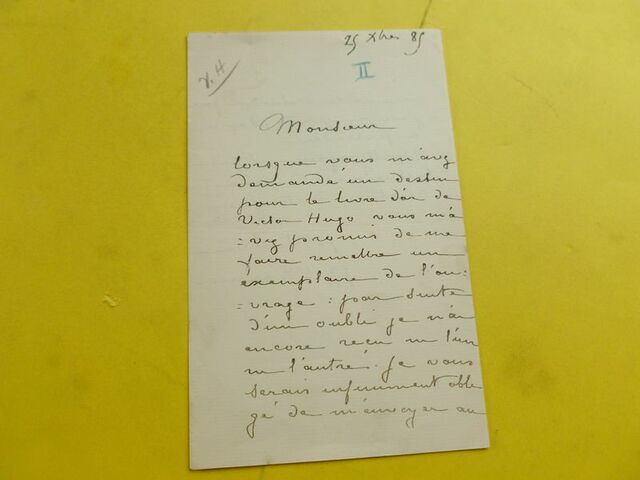 25 Xbre 85
V. H
II
Monsieur
lorsque vous m'avez
demandé un dessin
pour le livre d'or de
Victor Hugo vous m'a
=vez promis de me
faire remettre un
exemplaire de l'ou=
=vrage : par suite
d'un oubli je n'ai
encore reçu ni l'un
ni l'autre. Je vous
serais infiniment obli
gé de m'envoyer au